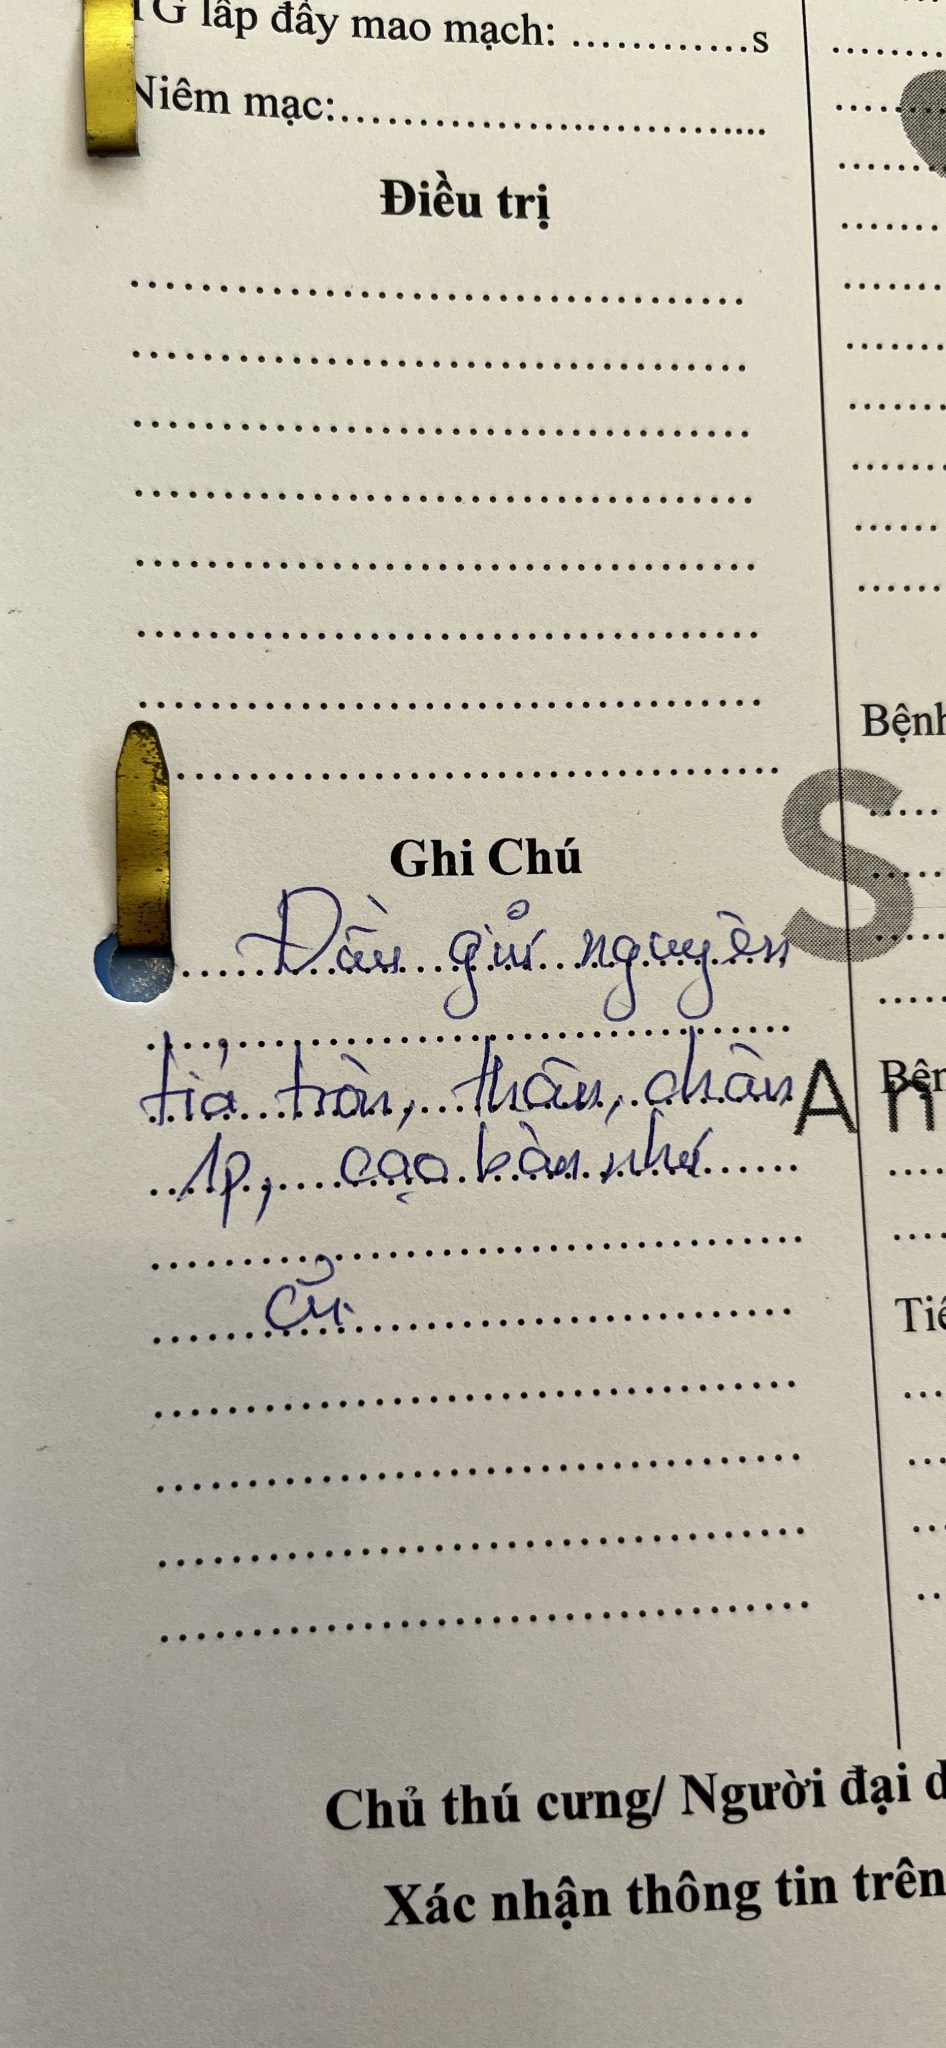 TG lấp đầy mao mạch: ............s
Niêm mạc:............................
Điều trị
Bệnh
S
Ghi Chú
Đầu giữ nguyên
tỉa tròn, thân, chân
An
Bện
1p, cạo bàn như
cũ
Tiê
Chủ thú cưng/ Người đại d
Xác nhận thông tin trên